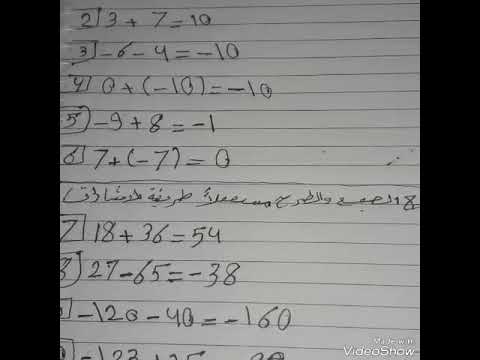 2) 3 + 7 = 10
3) -6 - 4 = -10
4) 0 + (-10) = -10
5) -9 + 8 = -1
6) 7 + (-7) = 0
والطرح مستعملاً طريقة
7) 18 + 36 = 54
8) 27 - 65 = -38
-120 - 40 = -160
-123
Made with
VideoShow